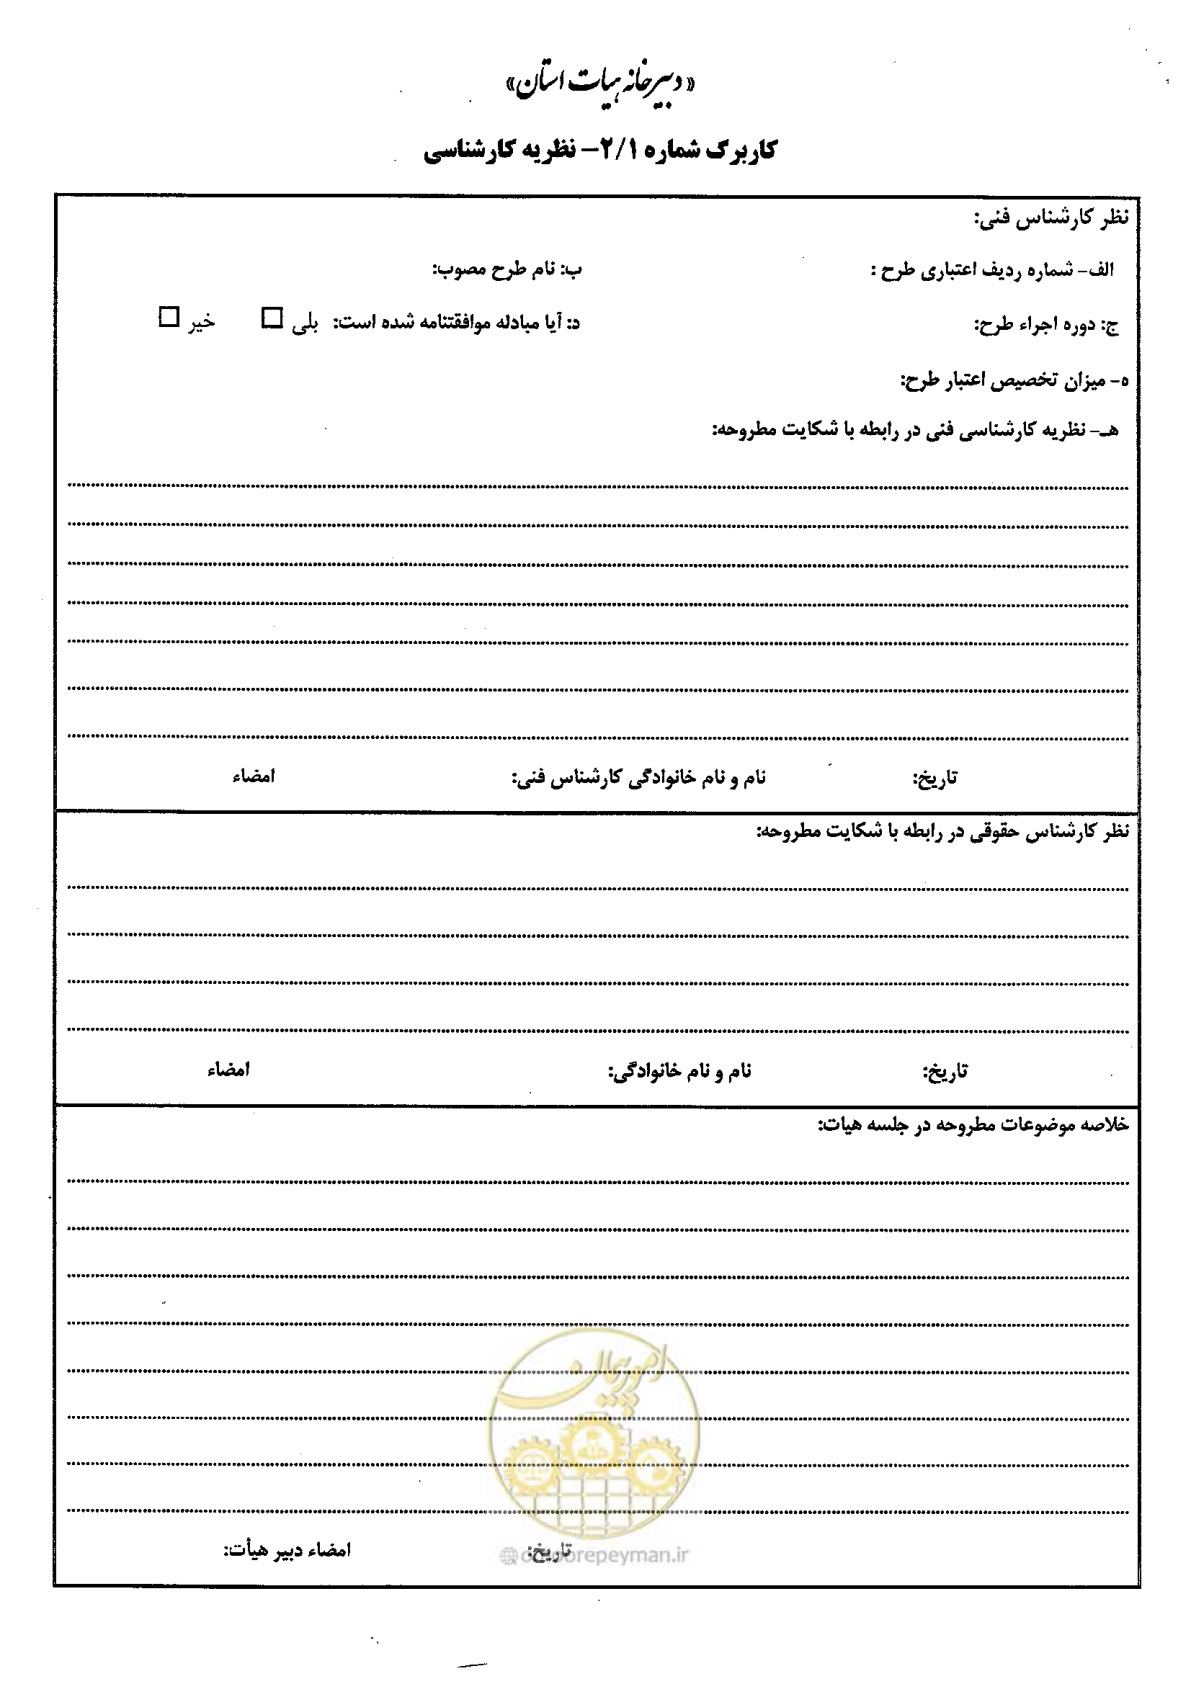 «دبیرخانه هیات استان»
کاربرگ شماره ۲/۱- نظریه کارشناسی
نظر کارشناس فنی:
الف- شماره ردیف اعتباری طرح : ب: نام طرح مصوب:
ج: دوره اجراء طرح: د: آیا مبادله موافقتنامه شده است: بلی □ خیر □
ه- میزان تخصیص اعتبار طرح:
هـ- نظریه کارشناسی فنی در رابطه با شکایت مطروحه:
تاریخ: نام و نام خانوادگی کارشناس فنی: امضاء
نظر کارشناس حقوقی در رابطه با شکایت مطروحه:
تاریخ: نام و نام خانوادگی: امضاء
خلاصه موضوعات مطروحه در جلسه هیات:
امور پیمان
تاریخ: امضاء دبیر هیأت: